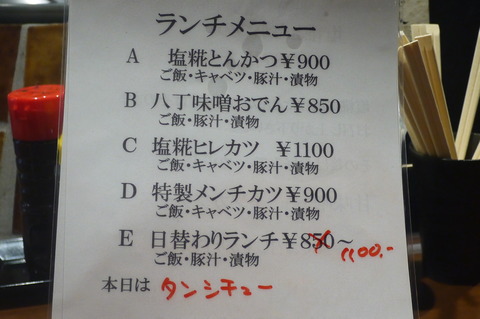 ランチメニュー
A 塩糀とんかつ¥900
ご飯・キャベツ・豚汁・漬物
B 八丁味噌おでん¥850
ご飯・豚汁・漬物
C 塩糀ヒレカツ ¥1100
ご飯・キャベツ・豚汁・漬物
D 特製メンチカツ¥900
ご飯・キャベツ・豚汁・漬物
E 日替わりランチ¥850~
1100.-
ご飯・豚汁・漬物
本日は タンシチュー